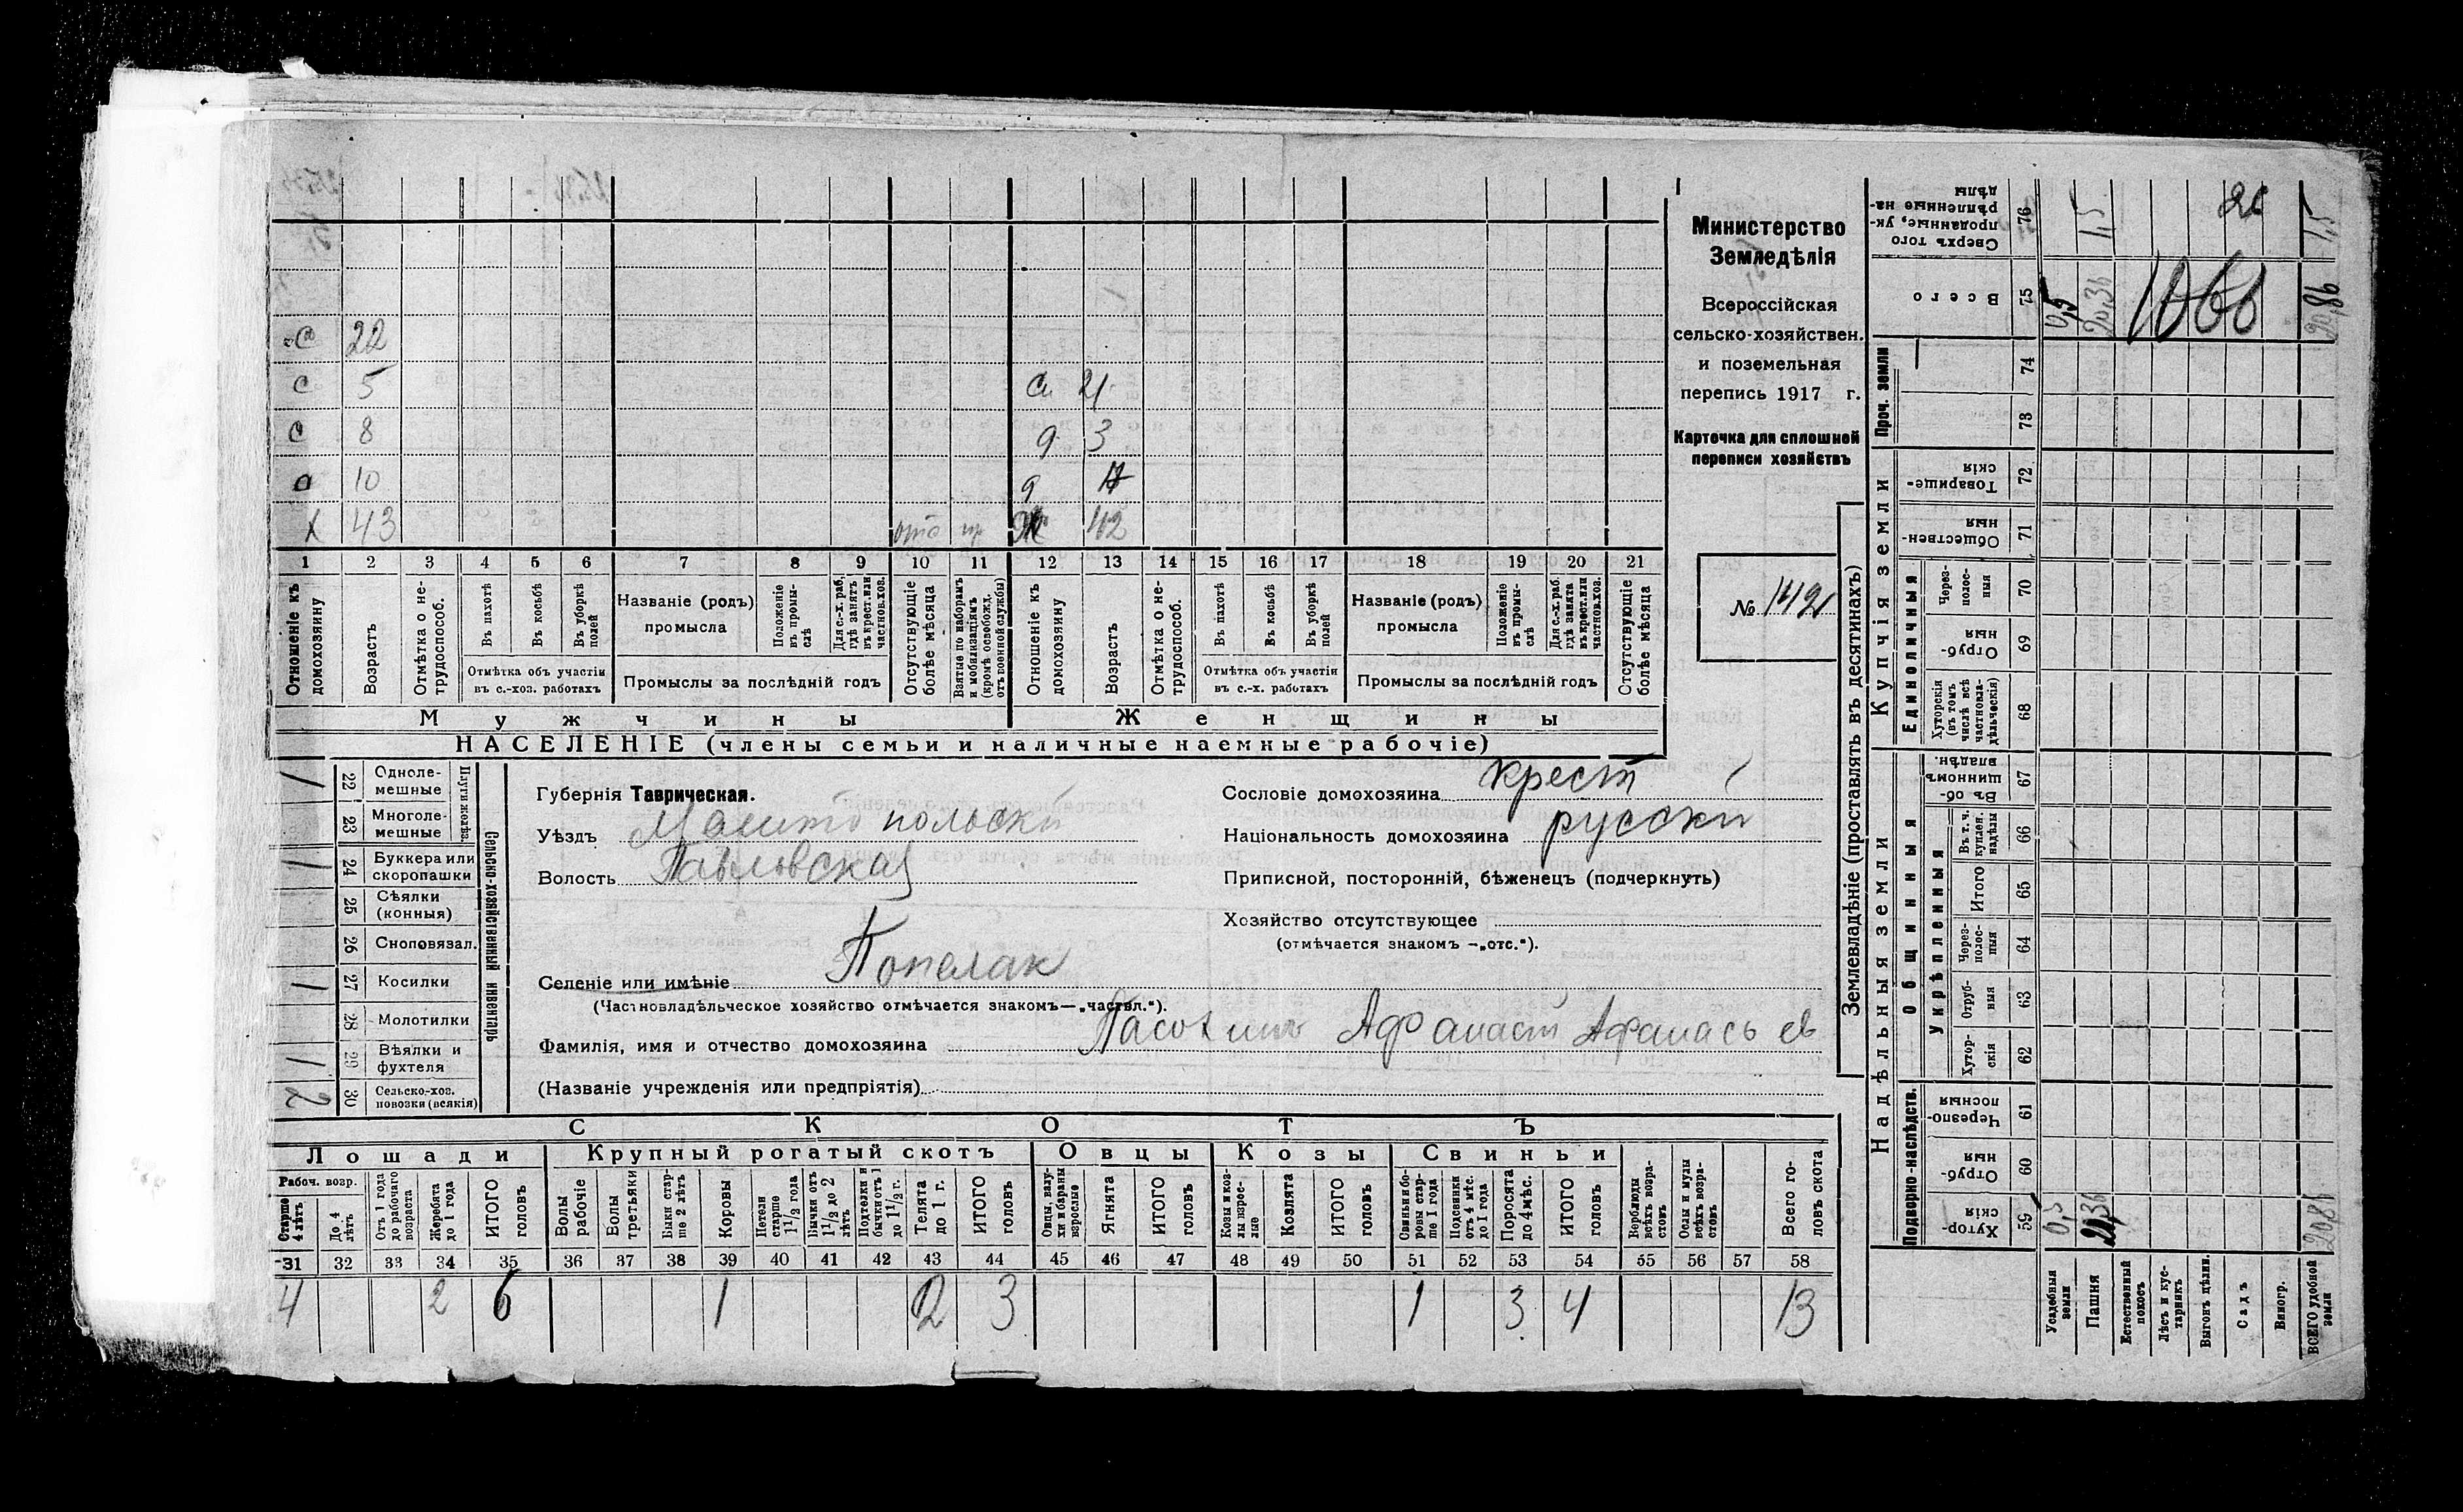 Министерство
Земледѣлія
Всероссійская
сельско-хозяйствен.
и поземельная
перепись 1917 г.
Карточка для сплошной
переписи хозяйствъ
№ 142
с 22
с 5
сн 21
с 8
д 3
10
д
43
42
1 2 3 4 5 6 7 8 9 10 11 12 13 14 15 16 17 18 19 20 21
Отношеніе къ домохозяину
Возрастъ
Отмѣтка о не-трудоспособ.
Въ пахотѣ
Въ косьбѣ
Въ уборкѣ полей
Отмѣтка объ участіи въ с.-хоз. работахъ
Названіе (родъ) промысла
Положеніе въ промы-слѣ
Для с.-х. раб. гдѣ занятъ въ крест. или частнов. хоз.
Промыслы за послѣдній годъ
Отсутствующіе болѣе мѣсяца
Взятые по наборамъ и мобилизаціямъ (кромѣ освобожд. отъ военной службы)
Отношеніе къ домохозяину
Возрастъ
Отмѣтка о не-трудоспособ.
Въ пахотѣ
Въ косьбѣ
Въ уборкѣ полей
Отмѣтка объ участіи въ с.-х. работахъ
Названіе (родъ) промысла
Положеніе въ промы-слѣ
Для с.-х. раб. гдѣ занята въ крест. или частнов. хоз.
Промыслы за послѣдній годъ
Отсутствующіе болѣе мѣсяца
Мужчины
Женщины
НАСЕЛЕНІЕ (члены семьи и наличные наемные рабочіе)
Сельско-хозяйственный инвентарь
1 22 Одноле-мешные
23 Многоле-мешные
1 24 Буккера или скоропашки
25 Сѣялки (конныя)
26 Сноповязал.
1 27 Косилки
28 Молотилки
1 29 Вѣялки и фухтеля
2 30 Сельско-хоз. повозки (всякія)
Губернія Таврическая.
Уѣздъ Мелитопольски
Волость Павловская
Селеніе или имѣніе Попелак
(Частновладѣльческое хозяйство отмѣчается знакомъ—„частвл.“).
Фамилія, имя и отчество домохозяина Афанасій Афанасьев
(Названіе учрежденія или предпріятія)
Сословіе домохозяина крест
Національность домохозяина русски
Приписной, посторонній, бѣженецъ (подчеркнуть)
Хозяйство отсутствующее
(отмѣчается знакомъ —„отс.“).
СКОТЪ
Лошади
Крупный рогатый скотъ
Овцы
Козы
Свиньи
Рабоч. возр.
Старше 4 лѣтъ
До 4 лѣтъ
Отъ 1 года до рабочаго возраста
Жеребята до 1 года
ИТОГО головъ
Волы рабочіе
Волы третьяки
Быки стар-ше 2 лѣтъ
Коровы
Нетели старше 1 1/2 года
Бычки отъ 1 1/2 до 2 лѣтъ
Подтелки и бычки отъ 1 до 1 1/2 г.
Телята до 1 г.
ИТОГО головъ
Овцы, валу-хи и бараны взрослые
Ягнята
ИТОГО головъ
Козы и коз-лы взрос-лые
Козлята
ИТОГО головъ
Свиньи и бо-ровы стар-ше 1 года
Подсвинки отъ 4 мѣс. до 1 года
Поросята до 4 мѣс.
ИТОГО головъ
Верблюды всѣхъ возра-стовъ
Ослы и мулы всѣхъ возра-стовъ
Всего го-ловъ скота
31 32 33 34 35 36 37 38 39 40 41 42 43 44 45 46 47 48 49 50 51 52 53 54 55 56 57 58
4 2 6 1 2 3 1 3 4 13
Землевладѣніе (проставлять въ десятинахъ)
Сверхъ того проданные, ук-рѣпленные на-дѣлы 76 1,5 1,5
Всего 75 0,5 20,36 1066 20,86
Проч. земли
74
73
Купчія земли
Товарище-скія 72
Обществен-ныя 71
Единоличныя
Через-полос-ныя 70
Отруб-ныя 69
Хуторскія (въ томъ числѣ всѣ частновла-дѣльческія) 68
Надѣльныя земли
Общинныя
Въ об-щинномъ владѣн. 67
Укрѣпленныя
Въ т. ч. куплен. надѣлы 66
Итого 65
Через-полос-ныя 64
Отруб-ныя 63
Хутор-скія 62
Подворно-наслѣдств.
Черезпо-лосныя 61
Отруб-ныя 60
Хутор-скія 59 0,5 20,36 20,86
Усадебныя земли
Пашня
Естественный покосъ
Лѣсъ и кус-тарникъ
Выгонъ цѣлин.
Садъ
Виногр.
ВСЕГО удобной земли